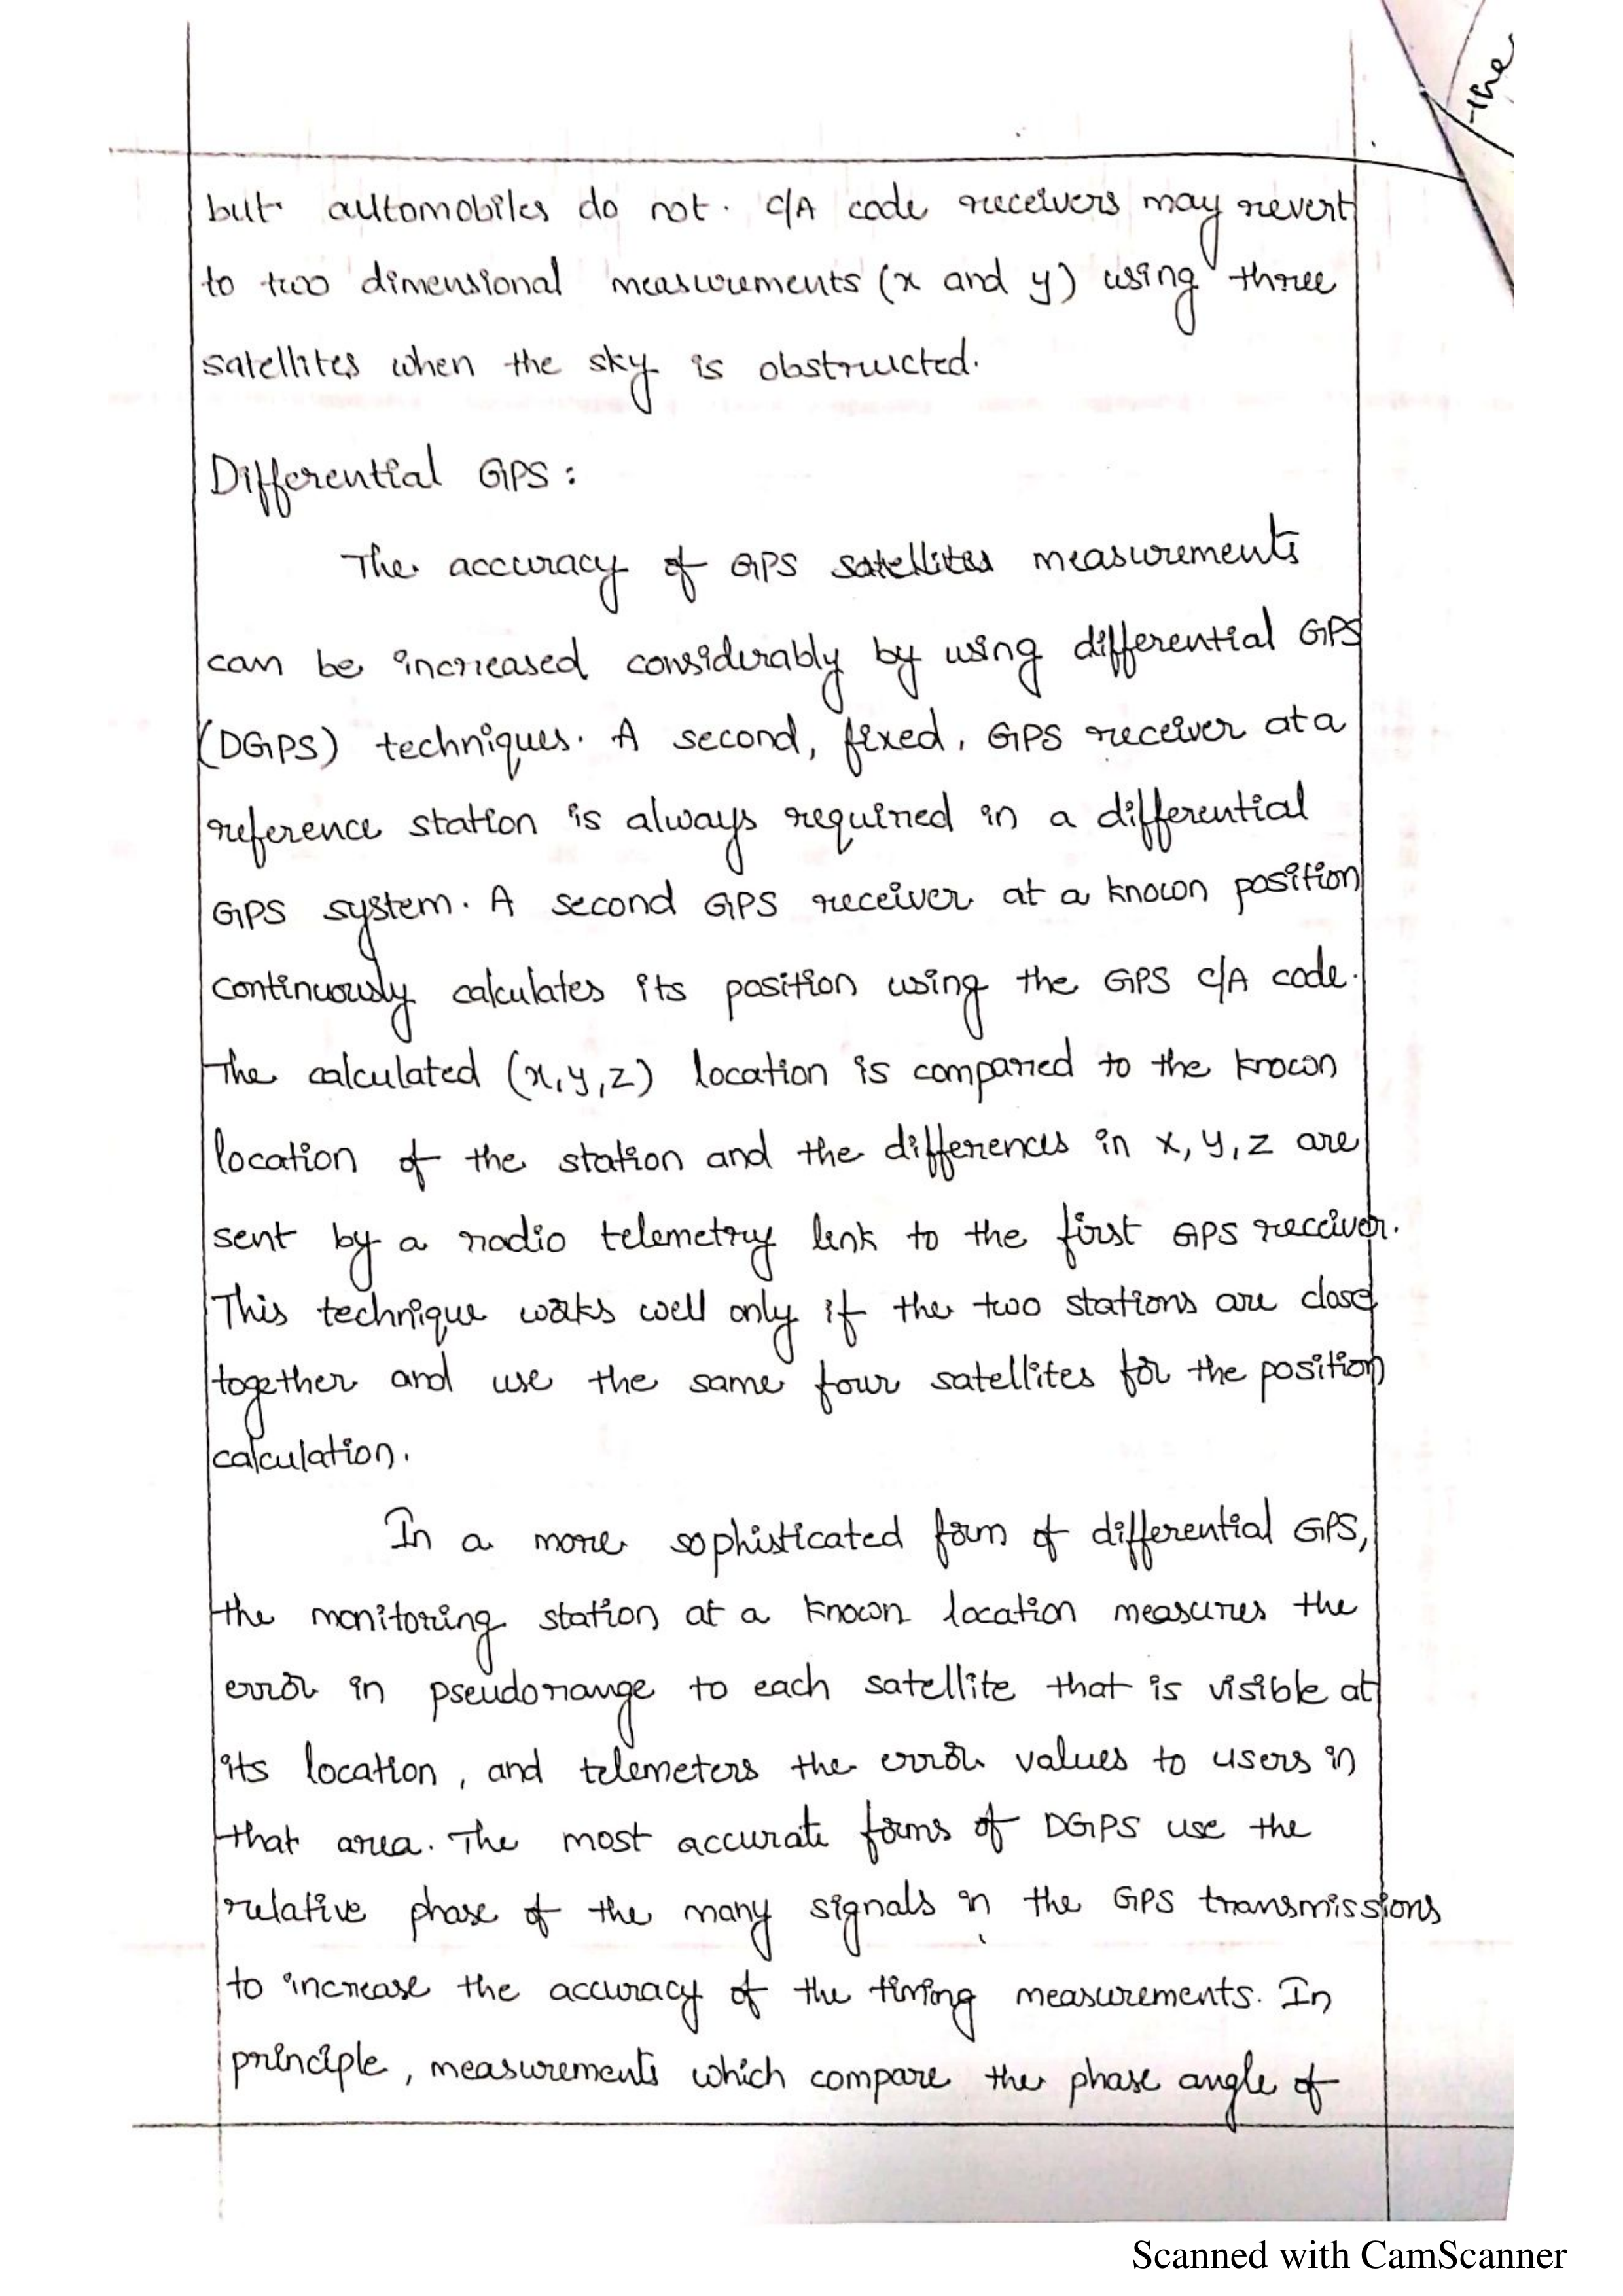 the
but automobiles do not. C/A code receivers may revert
to two dimensional measurements (x and y) using three
satellites when the sky is obstructed.
Differential GPS:
The accuracy of GPS satellites measurements
can be increased considerably by using differential GPS
(DGPS) techniques. A second, fixed, GPS receiver at a
reference station is always required in a differential
GPS system. A second GPS receiver at a known position
continuously calculates its position using the GPS C/A code.
The calculated (x,y,z) location is compared to the known
location of the station and the differences in x, y, z are
sent by a radio telemetry link to the first GPS receiver.
This technique works well only if the two stations are close
together and use the same four satellites for the position
calculation.
In a more sophisticated form of differential GPS,
the monitoring station at a known location measures the
error in pseudorange to each satellite that is visible at
its location, and telemeters the error values to users in
that area. The most accurate forms of DGPS use the
relative phase of the many signals in the GPS transmissions
to increase the accuracy of the timing measurements. In
principle, measurements which compare the phase angle of
Scanned with CamScanner